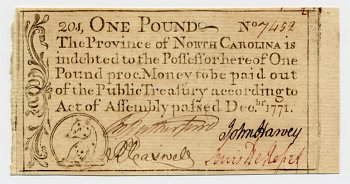 20s, ONE POUND No 7452
The Province of NORTH CAROLINA is
indebted to the Possessor hereof One
Pound proc. Money to be paid out
of the Public Treasury according to
Act of Assembly passed Decbr. 1771.
John Harvey
RCaswell
Lewis De Rosset